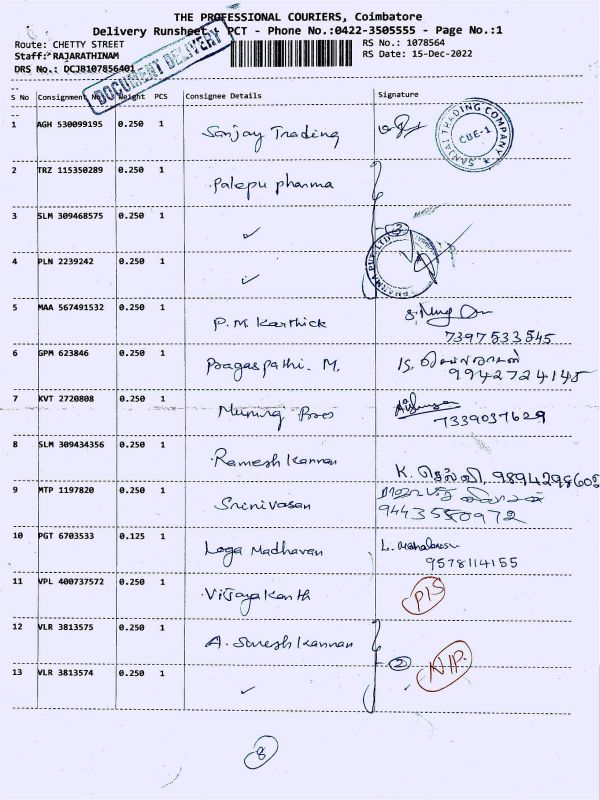 THE PROFESSIONAL COURIERS, Coimbatore
Delivery Runsheet, PCT - Phone No.:0422-3505555 - Page No.:1
Route: CHETTY STREET
RS No.: 1078564
Staff: RAJARATHINAM
RS Date: 15-Dec-2022
DRS No.: DCJB107856401
DOCUMENT DELIVERY
S No Consignment No Weight PCS Consignee Details Signature
1 AGH 530099195 0.250 1 Sanjay Trading
SANJAI TRADING COMPANY CBE-1
2 TRZ 115350289 0.250 1 Palepu pharma
3 SLM 309468575 0.250 1 ✓
3
PHARMA PVT LTD
4 PLN 2239242 0.250 1 ✓
5 MAA 567491532 0.250 1 P.M. Karthick
7397533545
6 GPM 623846 0.250 1 Pragaspathi. M.
9942724148
7 KVT 2720808 0.250 1
7339037629
8 SLM 309434356 0.250 1 Ramesh Kannan
K. செல்வி, 9894298602
9 MTP 1197820 0.250 1 Srinivasan
9443550972
10 PGT 6703533 0.125 1 Loga Madhavan
9578114155
11 VPL 400737572 0.250 1 Vijayakanth P1S
12 VLR 3813575 0.250 1 A. Suresh Kannan
2 N1P.
13 VLR 3813574 0.250 1 ✓
8